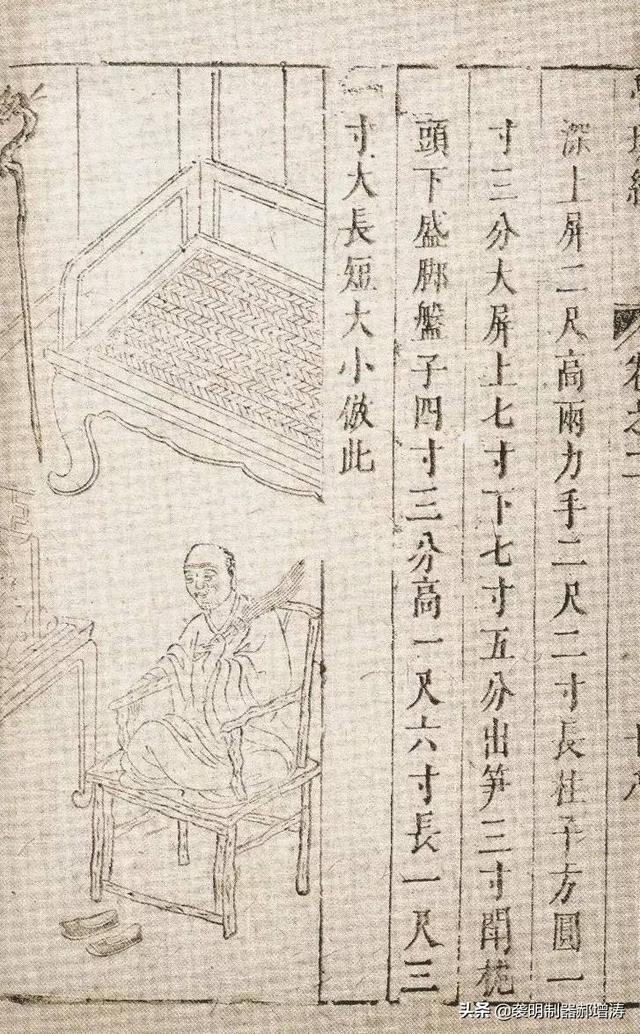 深上屏二尺高兩力手二尺二寸長柱子方圓一
寸三分大屏上七寸下七寸五分出笋三寸鬪枕
頭下盛脚盤子四寸三分高一尺六寸長一尺三
寸大長短大小倣此
卷之二
头条 @袭明制器郝增涛